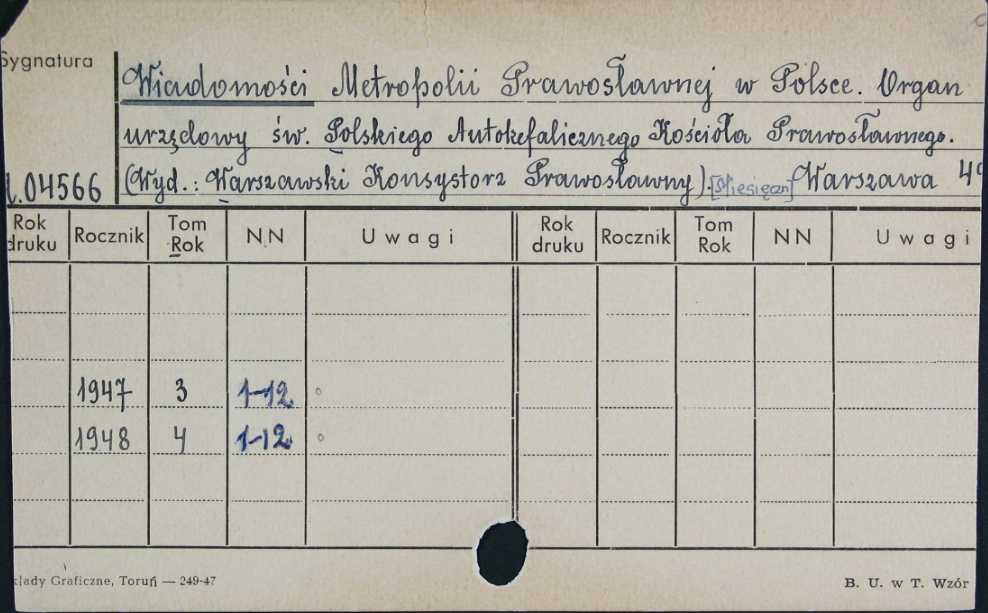 Sygnatura
Wiadomości Metropolii Prawosławnej w Polsce. Organ
urzędowy św. Polskiego Autokefalicznego Kościoła Prawosławnego.
04566 (Wyd.: Warszawski Konsystorz Prawosławny).[Miesięczn] Warszawa 4
Rok druku Rocznik Tom Rok NN Uwagi Rok druku Rocznik Tom Rok NN Uwagi
1947 3 1-12
1948 4 1-12
łady Graficzne, Toruń — 249-47 B. U. w T. Wzór